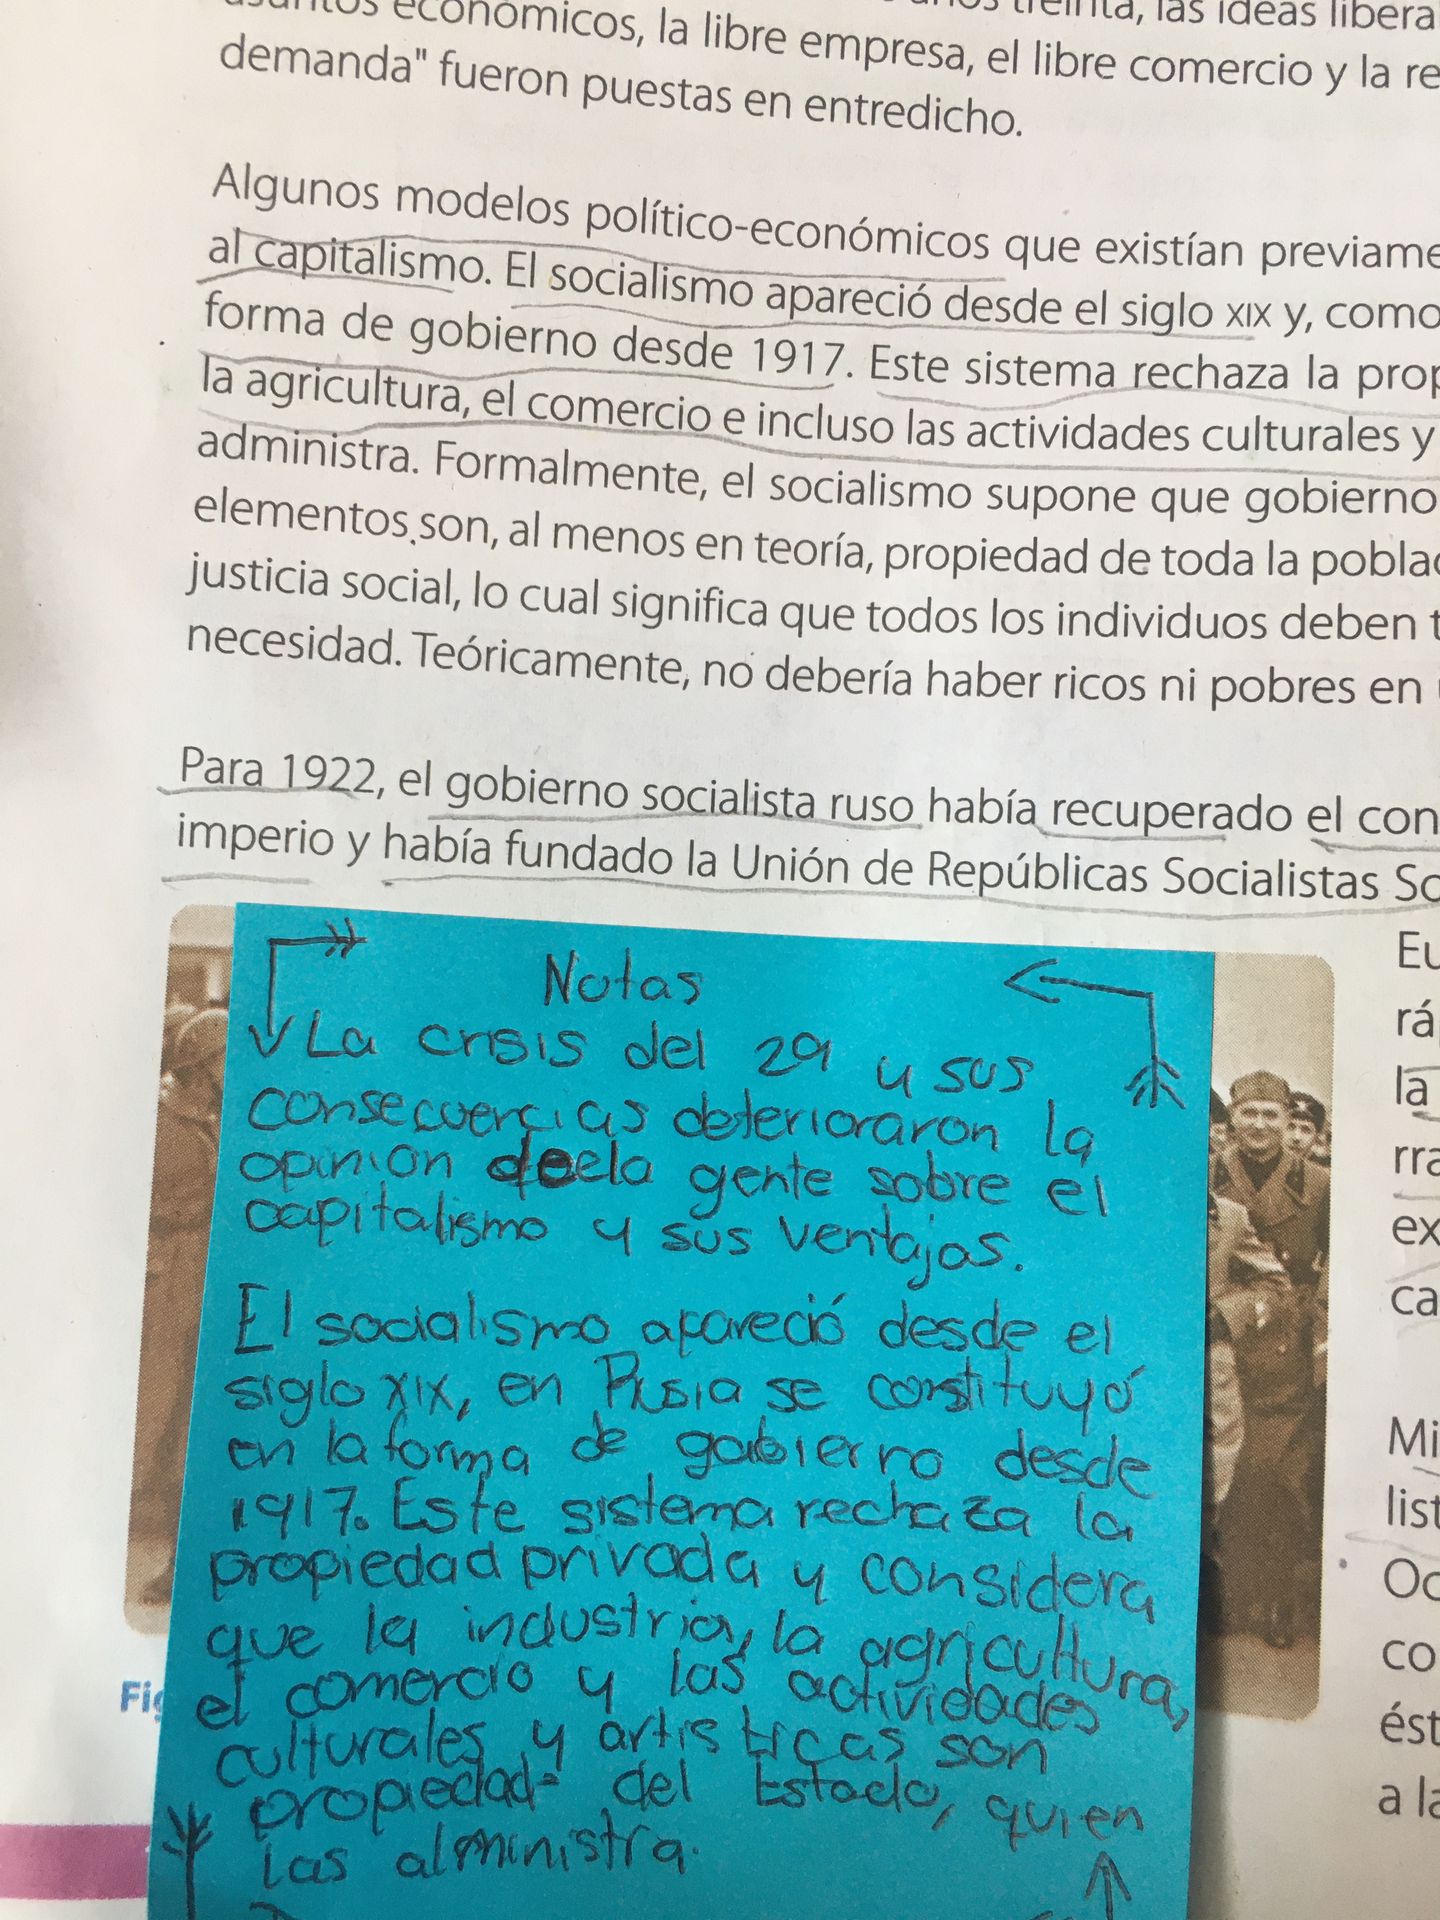 económicos, la libre empresa, el libre comercio y la re
demanda" fueron puestas en entredicho.
Algunos modelos político-económicos que existían previame
al capitalismo. El socialismo apareció desde el siglo XIX y, como
forma de gobierno desde 1917. Este sistema rechaza la prop
la agricultura, el comercio e incluso las actividades culturales y
administra. Formalmente, el socialismo supone que gobierno
elementos son, al menos en teoría, propiedad de toda la poblac
justicia social, lo cual significa que todos los individuos deben t
necesidad. Teóricamente, no debería haber ricos ni pobres en
Para 1922, el gobierno socialista ruso había recuperado el con
imperio y había fundado la Unión de Repúblicas Socialistas So
Notas
La crisis del 29 y sus
consecuencias deterioraron la
opinion de la gente sobre el
capitalismo y sus ventajas.
El socialismo apareció desde el
siglo XIX, en Rusia se constituyó
en la forma de gobierno desde
1917. Este sistema rechaza la
propiedad privada y considera
que la industria, la agricultura,
el comercio y las actividades
culturales y artisticas son
propiedad del Estado, quien
las alministra.
Fig
Eu
rá
la
rra
ex
ca
Mi
list
Oc
co
ést
a la